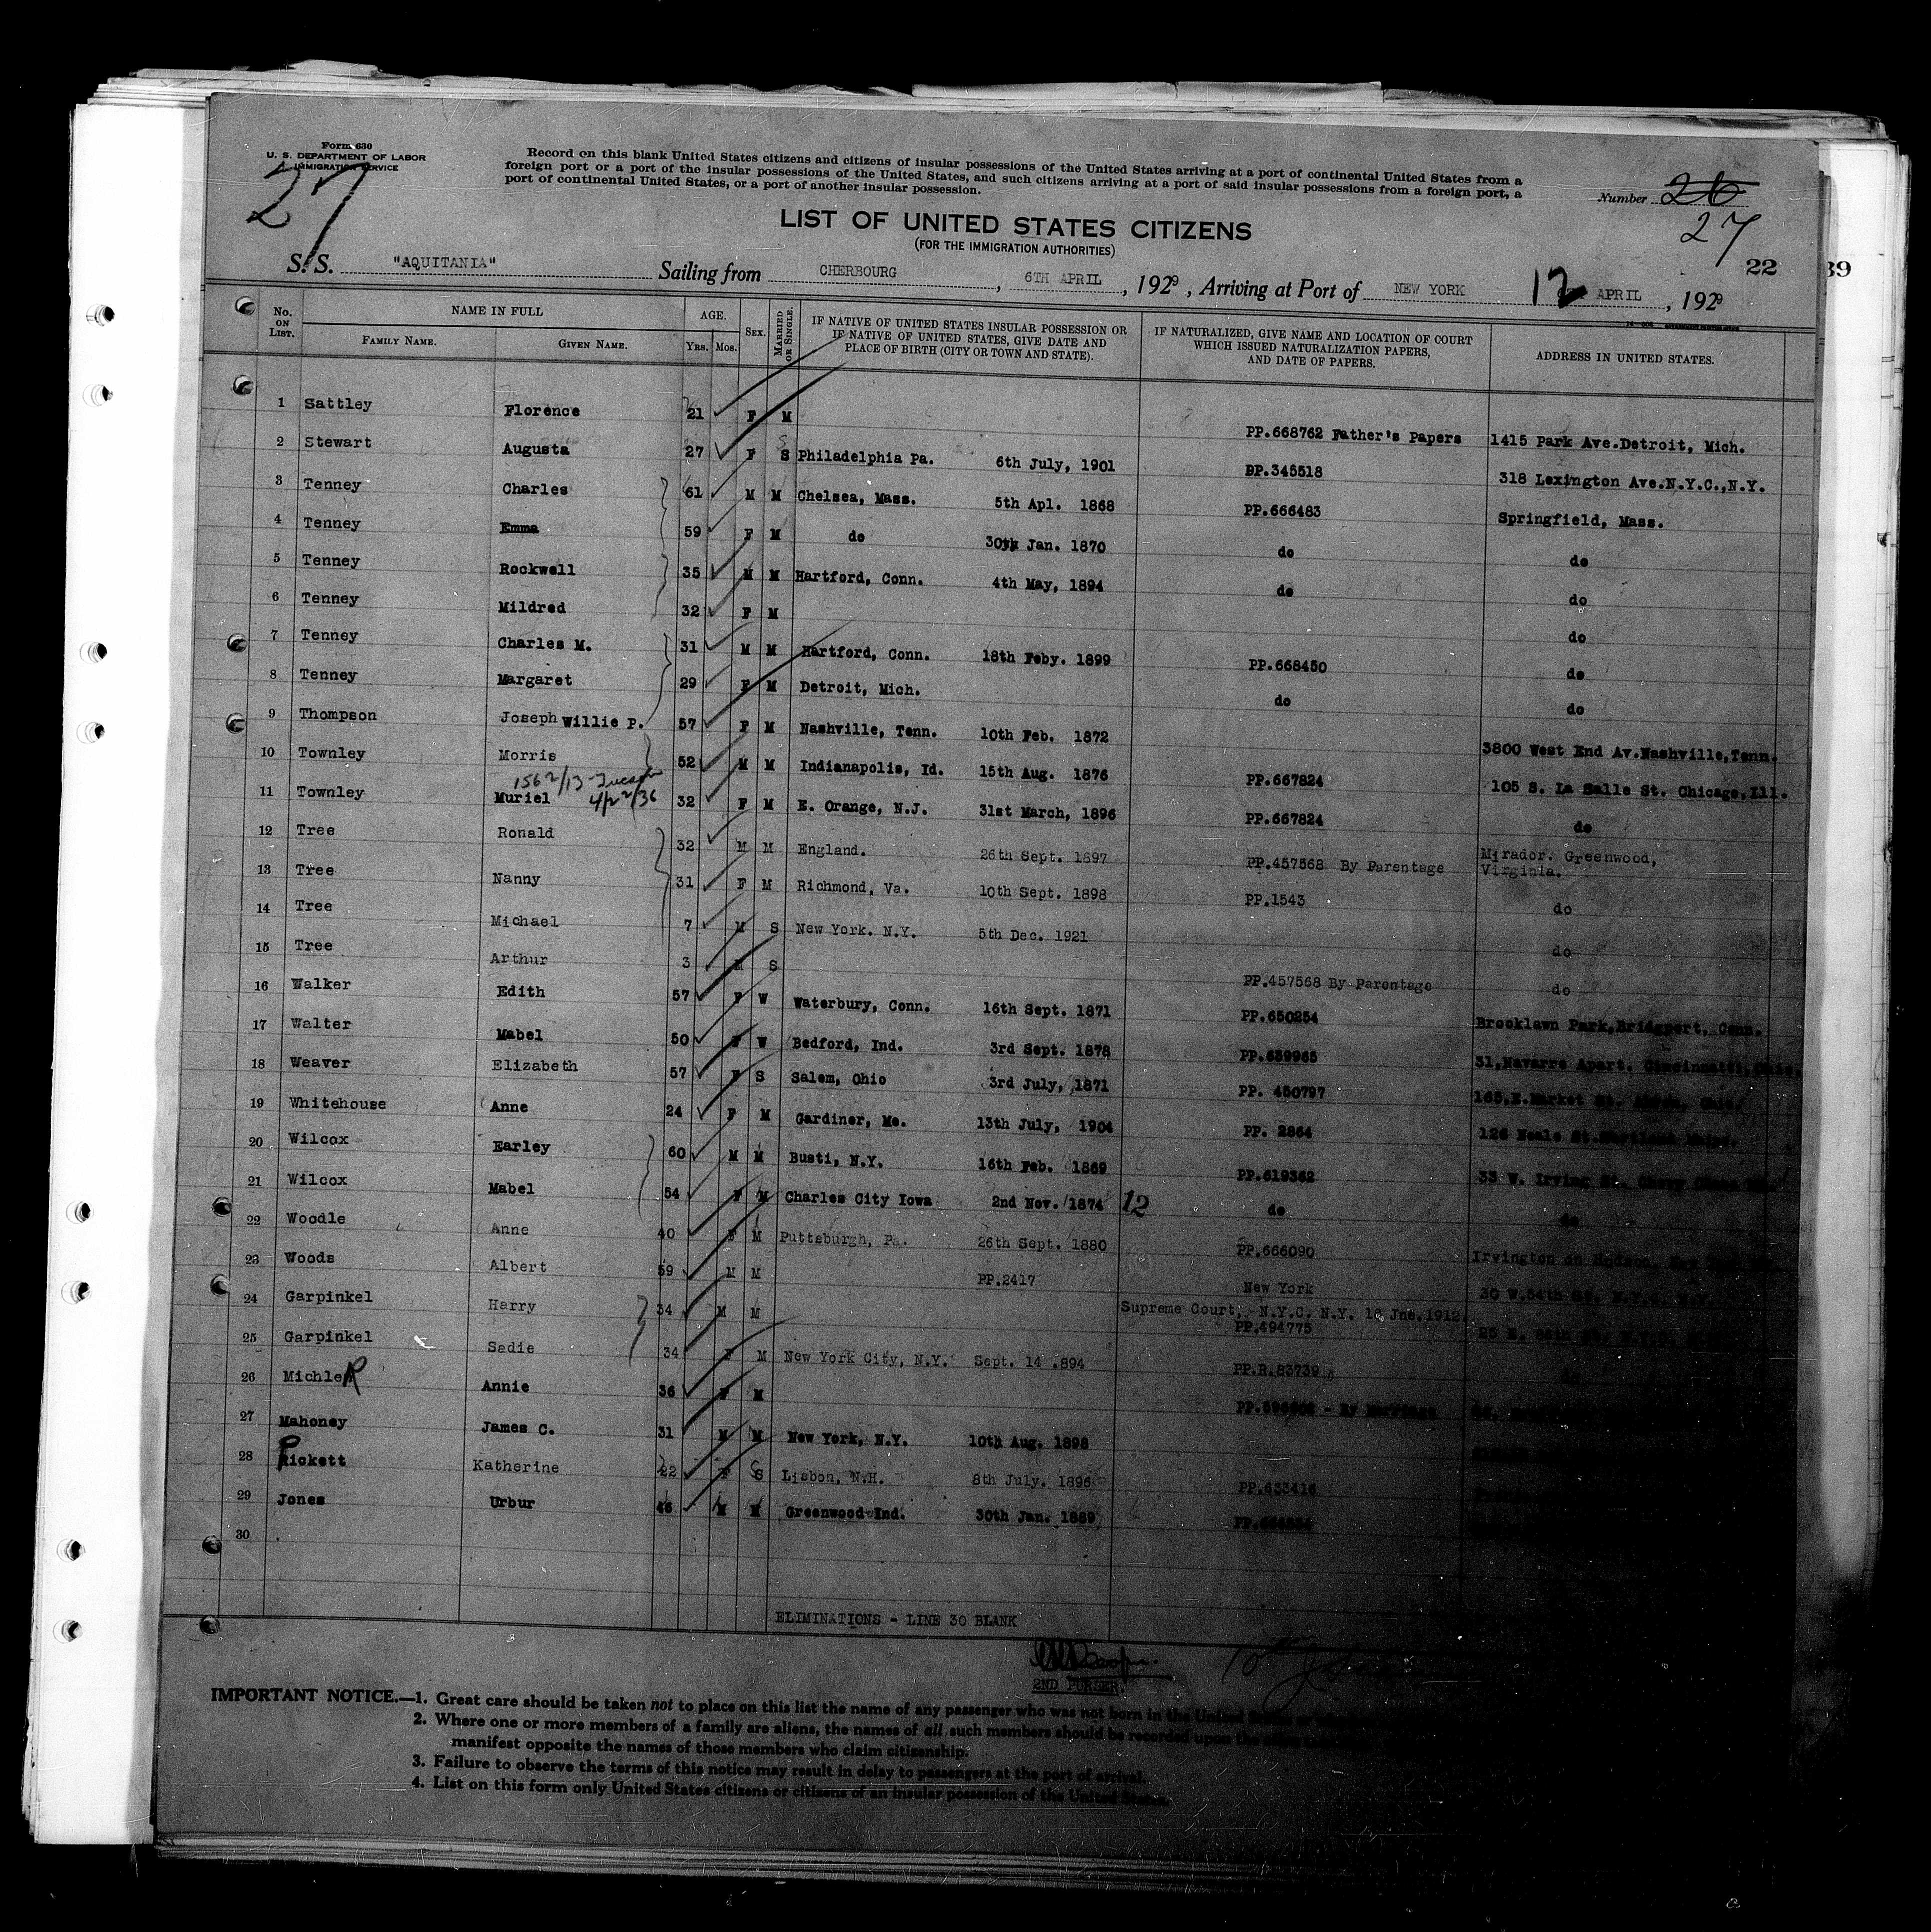 Form 630
U. S. DEPARTMENT OF LABOR
IMMIGRATION SERVICE
27
Record on this blank United States citizens and citizens of insular possessions of the United States arriving at a port of continental United States from a
foreign port or a port of the insular possessions of the United States, and such citizens arriving at a port of said insular possessions from a foreign port, a
port of continental United States, or a port of another insular possession.
Number 26
27
LIST OF UNITED STATES CITIZENS
(FOR THE IMMIGRATION AUTHORITIES)
22 39
S. S. "AQUITANIA" Sailing from CHERBOURG, 6TH APRIL, 1929, Arriving at Port of NEW YORK 12 APRIL, 1929
No. ON LIST. NAME IN FULL FAMILY NAME. GIVEN NAME. AGE. YRS. MOS. SEX. MARRIED OR SINGLE. IF NATIVE OF UNITED STATES INSULAR POSSESSION OR IF NATIVE OF UNITED STATES, GIVE DATE AND PLACE OF BIRTH (CITY OR TOWN AND STATE). IF NATURALIZED, GIVE NAME AND LOCATION OF COURT WHICH ISSUED NATURALIZATION PAPERS, AND DATE OF PAPERS. ADDRESS IN UNITED STATES.
1 Sattley Florence 21 F M PP.668762 Father's Papers 1415 Park Ave.Detroit, Mich.
2 Stewart Augusta 27 F S Philadelphia Pa. 6th July, 1901 PP.345518 318 Lexington Ave.N.Y.C.,N.Y.
3 Tenney Charles 61 M M Chelsea, Mass. 5th Apl. 1868 PP.666483 Springfield, Mass.
4 Tenney Emma 59 F M do 30th Jan. 1870 do do
5 Tenney Rockwell 35 M M Hartford, Conn. 4th May, 1894 do do
6 Tenney Mildred 32 F M do
7 Tenney Charles M. 31 M M Hartford, Conn. 18th Feby. 1899 PP.668450 do
8 Tenney Margaret 29 F M Detroit, Mich. do do
9 Thompson Joseph Willie P. 57 F M Nashville, Tenn. 10th Feb. 1872 3800 West End Av.Nashville,Tenn.
10 Townley Morris 52 M M Indianapolis, Id. 15th Aug. 1876 PP.667824 105 S. La Salle St. Chicago,Ill.
1562/13 4/22/36
11 Townley Muriel 32 F M E. Orange, N.J. 31st March, 1896 PP.667824 do
12 Tree Ronald 32 M M England. 26th Sept. 1897 PP.457568 By Parentage Mirador. Greenwood, Virginia.
13 Tree Nanny 31 F M Richmond, Va. 10th Sept. 1898 PP.1543 do
14 Tree Michael 7 M S New York. N.Y. 5th Dec. 1921 do
15 Tree Arthur 3 M S PP.457568 By Parentage do
16 Walker Edith 57 F W Waterbury, Conn. 16th Sept. 1871 PP.650254 Brooklawn Park,Bridgport, Conn.
17 Walter Mabel 50 F W Bedford, Ind. 3rd Sept. 1878 PP.639965 31,Navarre Apart. Cincinnatti,Ohio.
18 Weaver Elizabeth 57 F S Salem, Ohio 3rd July, 1871 PP. 450797
19 Whitehouse Anne 24 F M Gardiner, Me. 13th July, 1904 PP. 2864
20 Wilcox Earley 60 M M Busti, N.Y. 16th Feb. 1869 PP.619362
21 Wilcox Mabel 54 F M Charles City Iowa 2nd Nov. 1874 12 do do
22 Woodle Anne 40 F M Puttsburgh, Pa. 26th Sept. 1880 PP.666090 Irvington on Hudson,
23 Woods Albert 59 M M PP.2417 New York
24 Garpinkel Harry 34 M M Supreme Court, N.Y.C. N.Y. 18 Jne.1912 PP.494775
25 Garpinkel Sadie 34 F M New York City, N.Y. Sept. 14 .894 PP.R.83739
26 MichleR Annie 36 F M By Marriage
27 Mahoney James C. 31 M M New York, N.Y. 10th Aug. 1898
28 Rickett Katherine 22 F S Lisbon, N.H. 8th July. 1896 PP.633416
29 Jones Urbur 46 M M Greenwood Ind. 30th Jan. 1889
30
ELIMINATIONS - LINE 30 BLANK
2ND PURSER
IMPORTANT NOTICE.—1. Great care should be taken not to place on this list the name of any passenger who was not born in the United
2. Where one or more members of a family are aliens, the names of all such members should be recorded upon the
manifest opposite the names of those members who claim citizenship.
3. Failure to observe the terms of this notice may result in delay to passengers at the port of arrival.
4. List on this form only United States citizens or citizens of an insular possession of the United States.